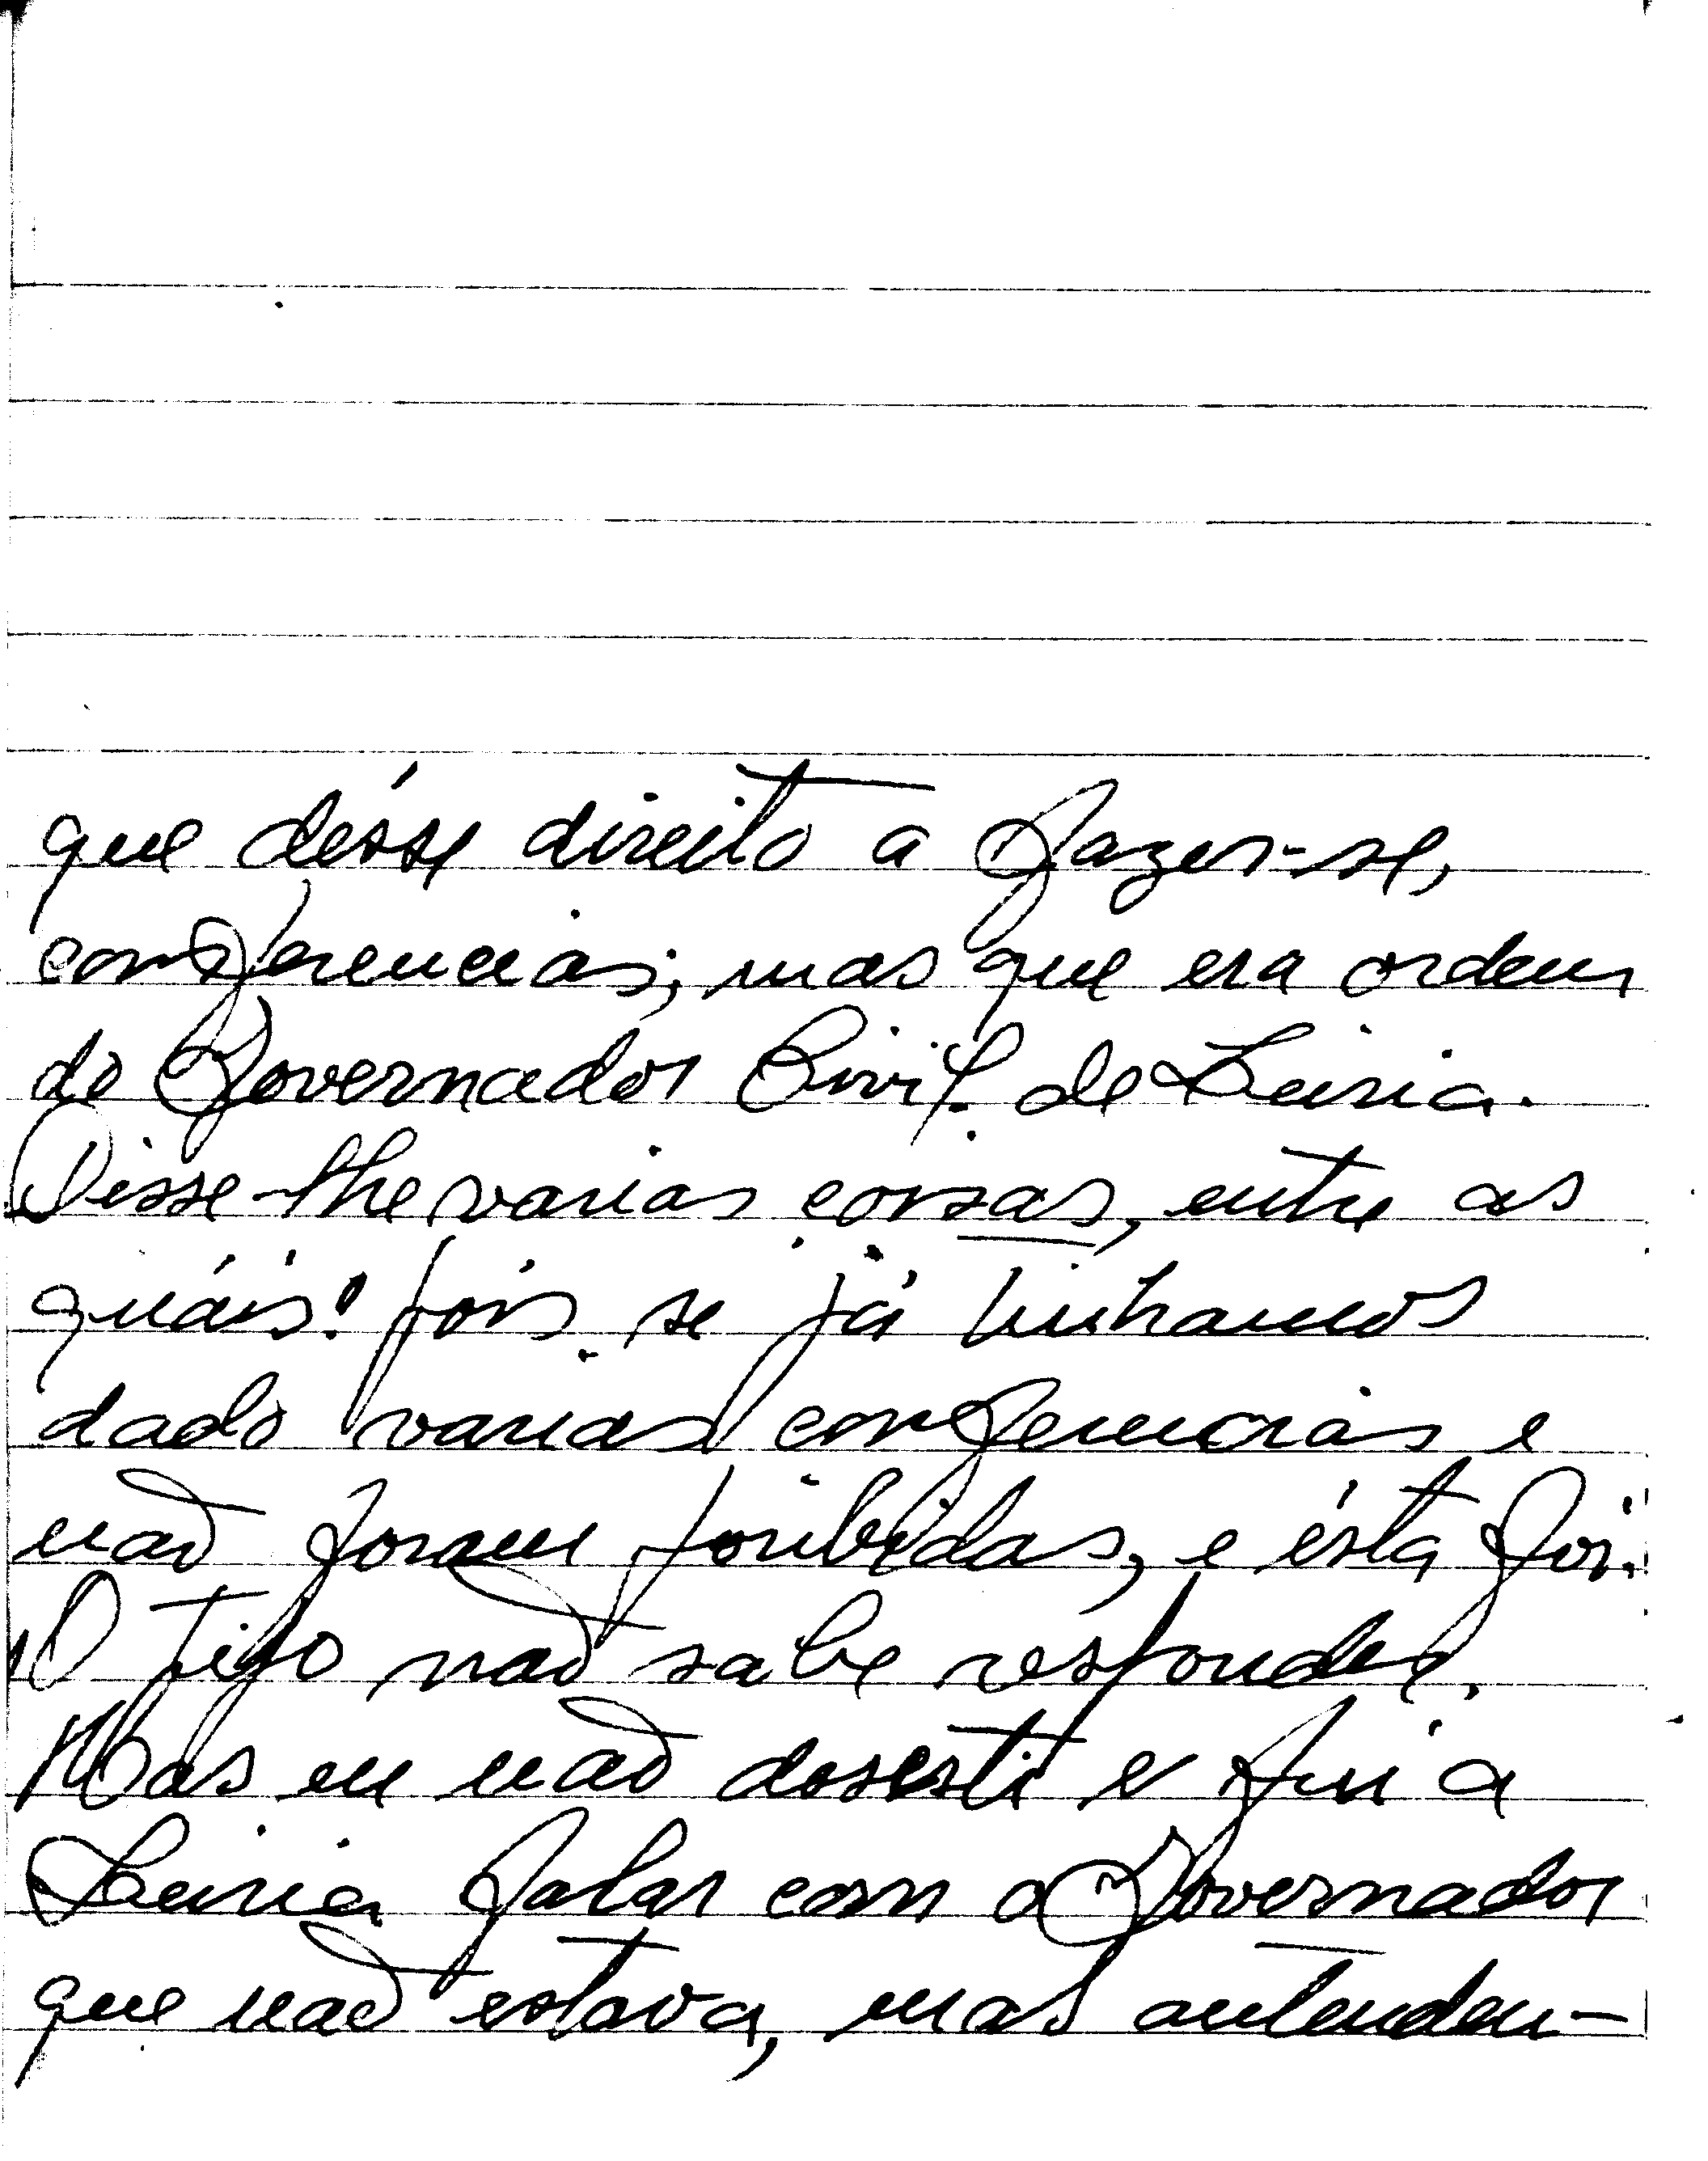 que désse direito a fazer-se,
conferencias; mas que era ordem
do Governador Civil de Leiria.
Disse-lhe varias coisas, entre as
quáis: pois se já tinhamos
dado varias conferencias e
não foram proibidas, e ésta foi!
O tipo não sabe responder.
Mas eu não desesti e fui a
Leiria falar com o Governador
que não estava, mas